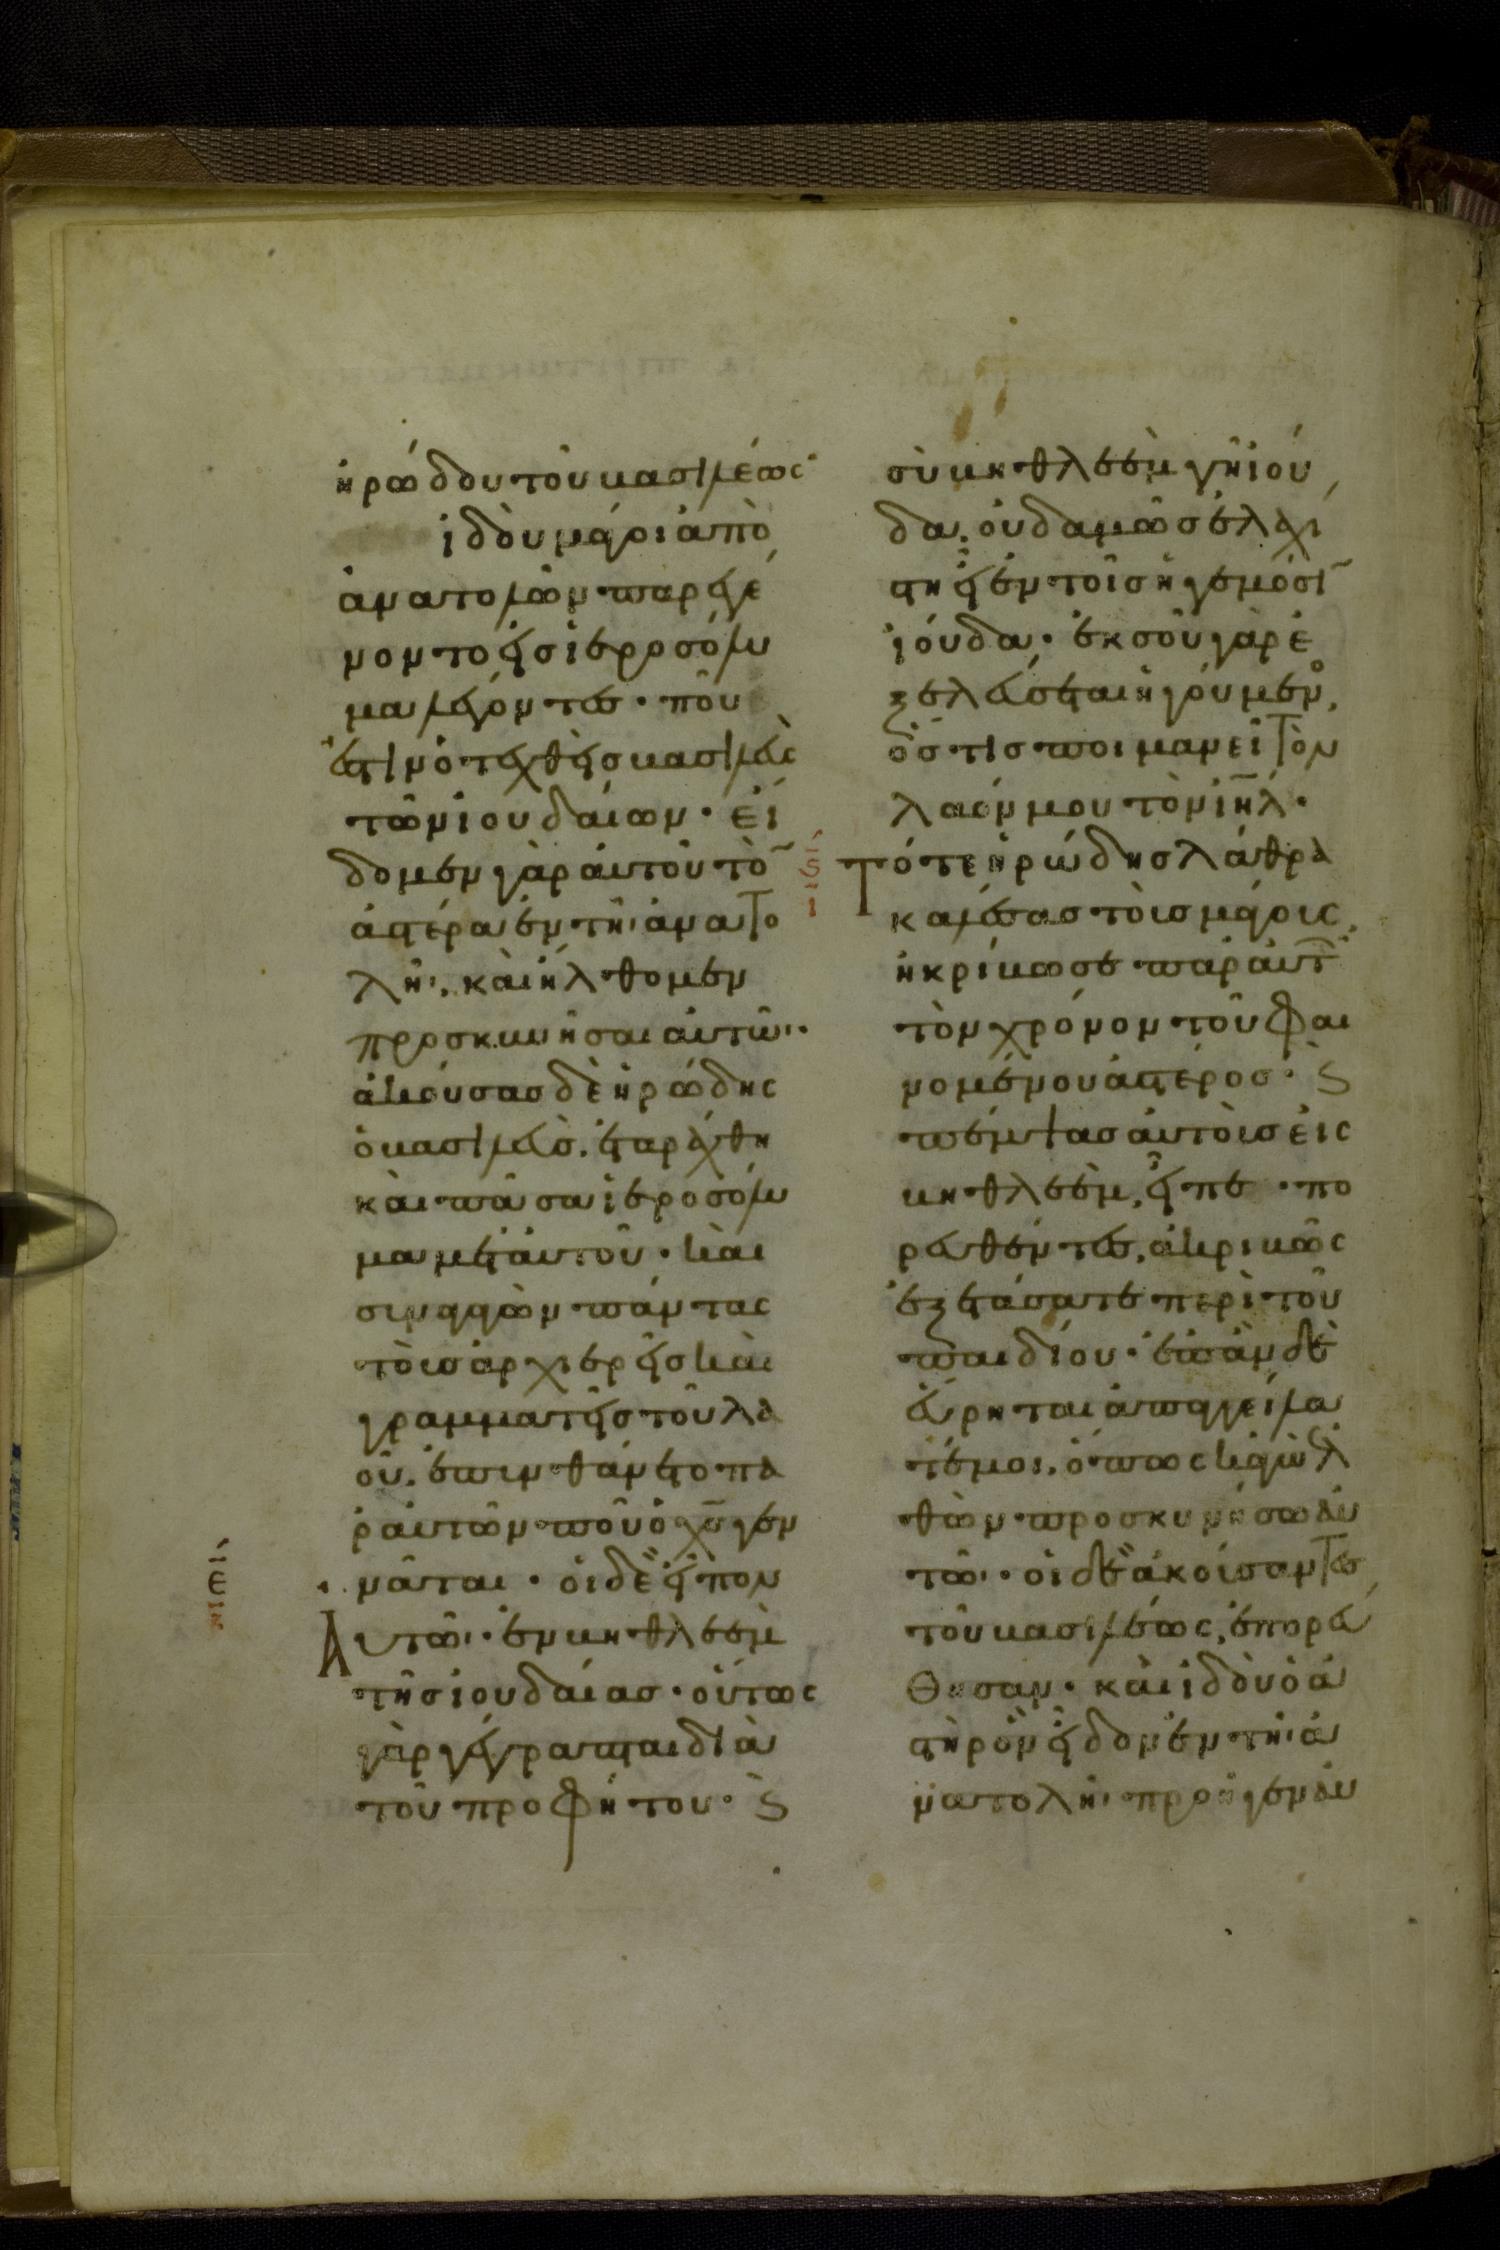 ἡρώδου τοῦ βασιλέως·
ἰδοὺ μάγοι ἀπὸ
ἀνατολῶν παρεγέ
νοντο εἰς ἱεροσόλυ
μα λέγοντες· ποῦ
ἐστὶν ὁ τεχθεὶς βασιλεὺς
τῶν ἰουδαίων· εἴ
δομεν γὰρ αὐτοῦ τὸ̄
ἀστέρα ἐν τῆι ἀνατο
λῆι, καὶ ἤλθομεν
προσκυνῆσαι αὐτῶι·
ἀκούσας δὲ ἡρώδης
ὁ βασιλεὺς, ἐταράχθη
καὶ πᾶσα ἱεροσόλυ
μα μετ' αὐτοῦ· καὶ
συναγαγὼν πάντας
τοὺς ἀρχιερεῖς καὶ
γραμματεῖς τοῦ λα
οῦ, ἐπυνθάνετο πα
ρ' αὐτῶν ποῦ ὁ χ̅ς̅ γεν
νᾶται· οἱ δὲ εἶπον
Αὐτῶι· ἐν βηθλεὲμ
τῆς ἰουδαίας· οὕτως
γὰρ γέγραπται διὰ
τοῦ προφήτου· ϗ
σὺ βηθλεὲμ γῆ ἰού
δα, οὐδαμῶς ἐλαχί
στη εἶ ἐν τοῖς ἡγεμόσῑ
ἰούδα· ἐκ σοῦ γὰρ ἐ
ξελεύσεται ἡγούμενο,
ὅστις ποιμανεῖ τὸν
λαόν μου τὸν ι̅η̅λ̅·
ϛ
ι
Τότε ἡρώδης λάθρα
καλέσας τοὺς μάγους,
ἠκρίβωσε παρ' αὐτ
τὸν χρόνον τοῦ φαι
νομένου ἀστέρος· ϗ
πέμψας αὐτοὺς εἰς
βηθλεὲμ, εἶπε· πο
ρευθέντες, ἀκριβῶς
ἐξετάσατε περὶ τοῦ
παιδίου· ἐπὰν δὲ
εὕρητε ἀπαγγείλα
τέ μοι, ὅπως κἀγὼ ἐλ
θὼν προσκυνήσω αὐ
τῶι· οἱ δὲ ἀκούσαντες
τοῦ βασιλέως, ἐπορεύ
θησαν· καὶ ἰδοὺ ὁ ἀ
στὴρ ὃν εἶδον ἐν τῆι ἀ
νατολῆι προῆγεν αὐ